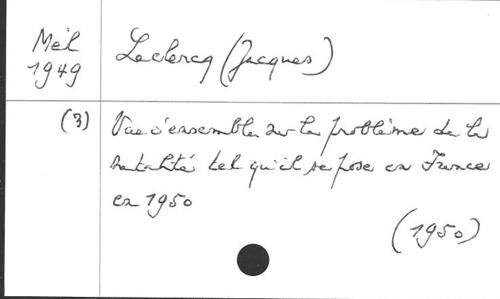 Mél
1949
Leclercq (Jacques)
(3)
Vue d'ensemble sur le problème de la
natalité tel qu'il se pose en France
en 1950
(1950)